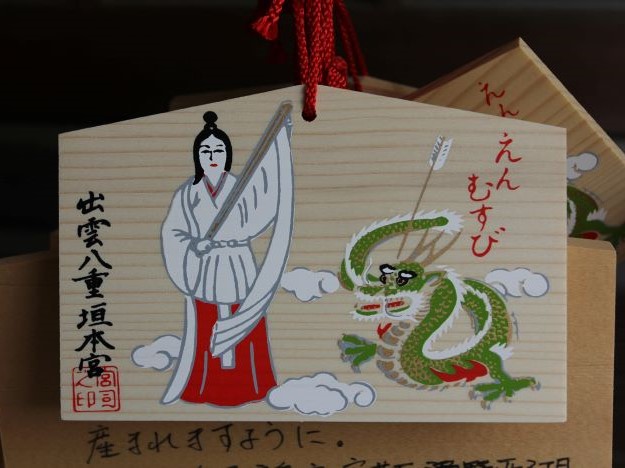 えんむすび
出雲八重垣本宮
宮司
之印
えん
産まれますように。